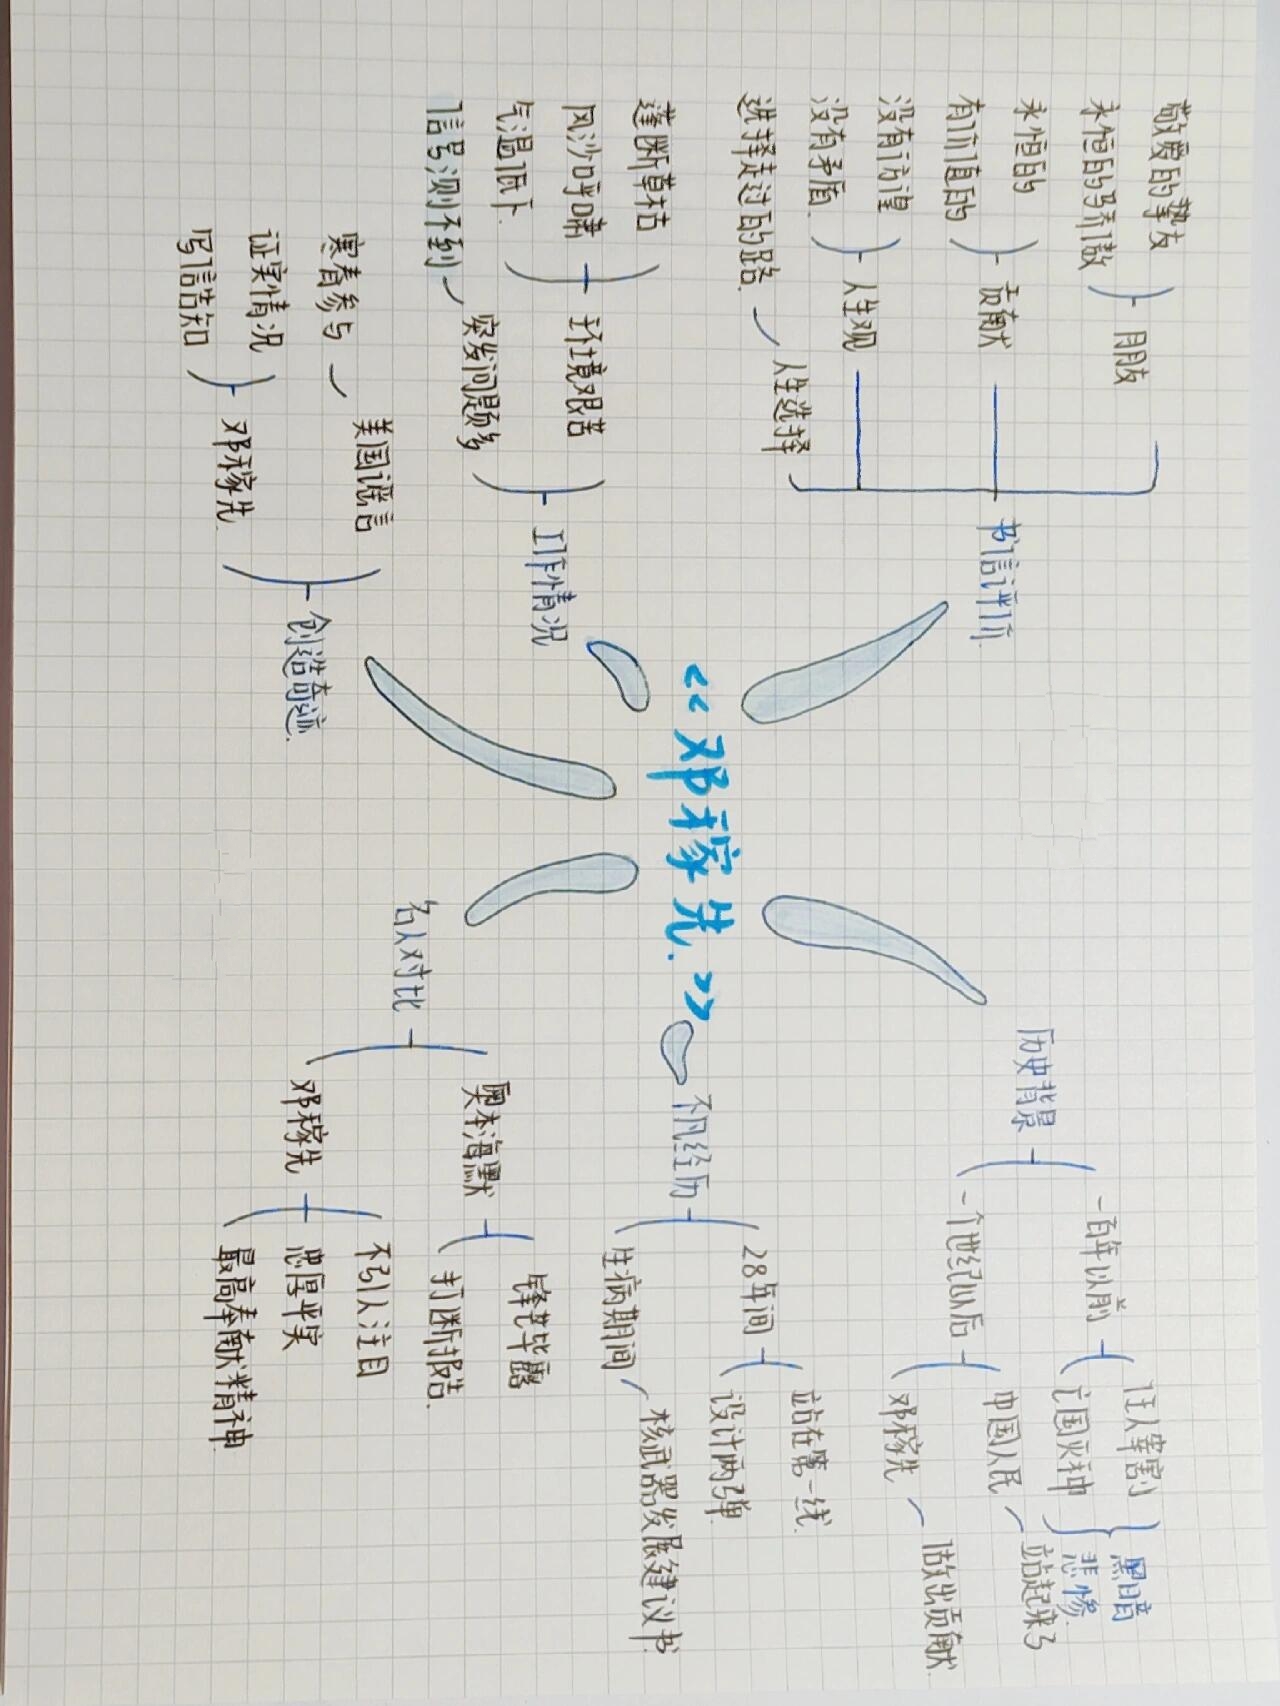 《邓稼先》
历史背景
一百年以前
任人宰割
亡国灭种
黑暗
悲惨
一个世纪以后
中国人民
站起来了
邓稼先
做出贡献
不凡经历
28年间
站在第一线
设计两弹
生病期间
核武器发展建议书
名人对比
奥本海默
锋芒毕露
打断报告
邓稼先
不引人注目
忠厚平实
最高奉献精神
创造奇迹
美国谣言
寒春参与
邓稼先
证实情况
写信告知
工作情况
环境艰苦
蓬断草枯
风沙呼啸
气温低下
突发问题多
信号测不到
书信评价
朋友
敬爱的挚友
永恒的骄傲
贡献
永恒的
有价值的
人生观
没有彷徨
没有矛盾
人生选择
选择走过的路